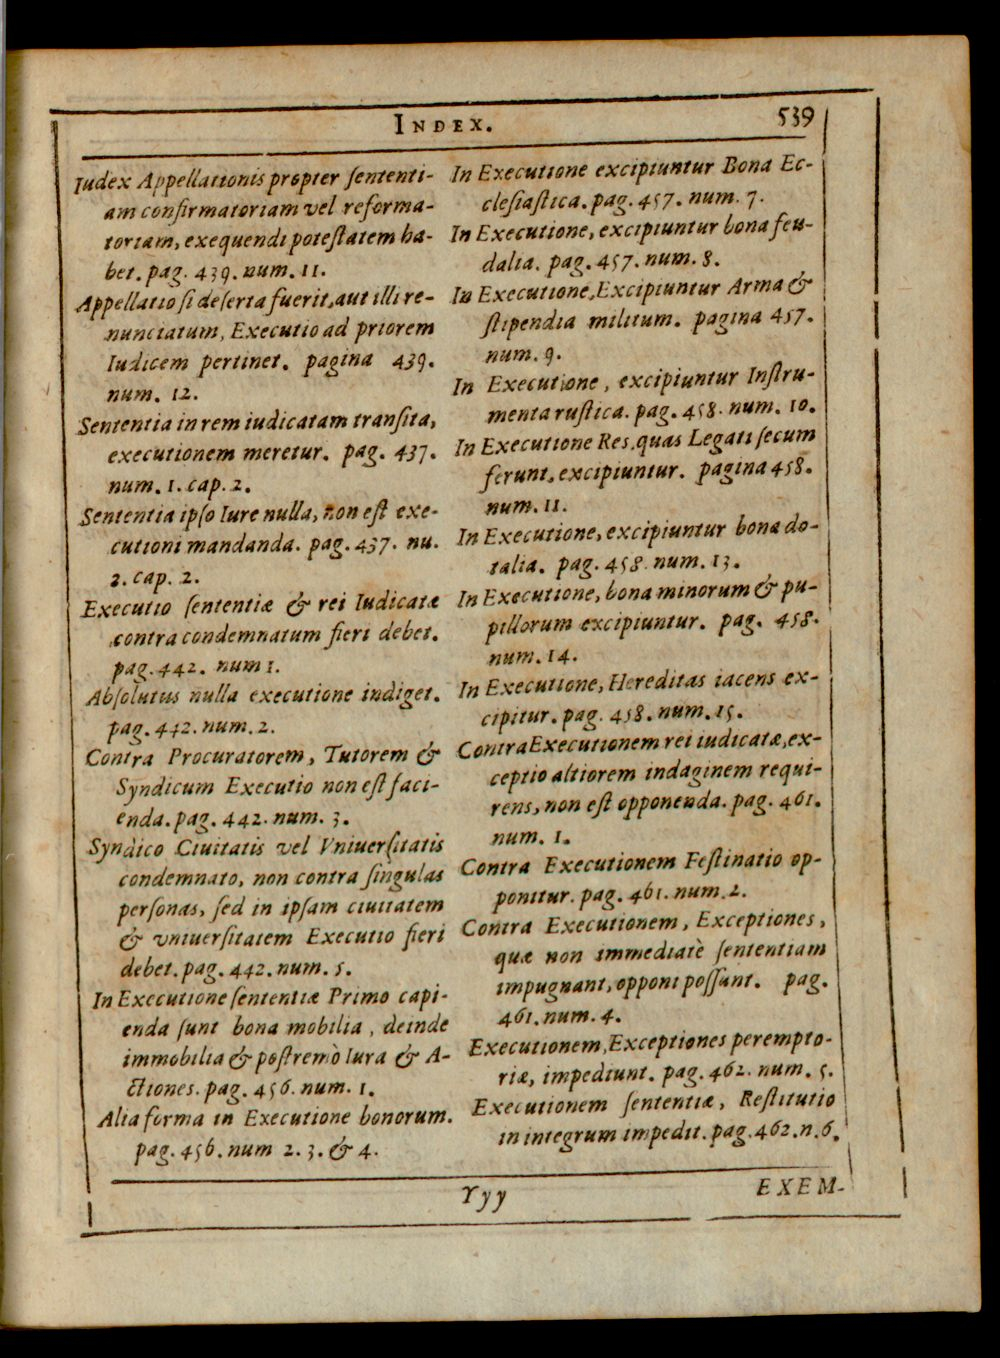 INDEX.
539
Iudex Appellationis propter ſententi-
am confirmatoriam vel reforma-
toriam, exequendi poteſtatem ha-
bet. pag. 439. num. 11.
Appellatio ſi deſerta fuerit, aut illi re-
nunciatum, Executio ad priorem
Iudicem pertinet. pagina 439.
num. 12.
Sententia in rem iudicatam tranſita,
executionem meretur. pag. 437.
num. 1. cap. 2.
Sententia ipſo Iure nulla, non eſt exe-
cutioni mandanda. pag. 437. nu.
2. cap. 2.
Executio ſententiæ & rei Iudicatæ
contra condemnatum fieri debet.
pag. 442. num 1.
Abſolutus nulla executione indiget.
pag. 442. num. 2.
Contra Procuratorem, Tutorem &
Syndicum Executio non eſt faci-
enda. pag. 442. num. 3.
Syndico Ciuitatis vel Vniuerſitatis
condemnato, non contra ſingulas
perſonas, ſed in ipſam ciuitatem
& vniuerſitatem Executio fieri
debet. pag. 442. num. 5.
In Executione ſententiæ Primo capi-
enda ſunt bona mobilia, deinde
immobilia & poſtremò Iura & A-
ctiones. pag. 456. num. 1.
Alia forma in Executione bonorum.
pag. 456. num 2. 3. & 4.
In Executione excipiuntur Bona Ec-
cleſiaſtica. pag. 457. num. 7.
In Executione, excipiuntur bona feu-
dalia. pag. 457. num. 8.
In Executione, Excipiuntur Arma &
ſtipendia militum. pagina 457.
num. 9.
In Executione, excipiuntur Inſtru-
menta ruſtica. pag. 458. num. 10.
In Executione Res, quas Legati ſecum
ferunt, excipiuntur. pagina 458.
num. 11.
In Executione, excipiuntur bona do-
talia. pag. 458. num. 13.
In Executione, bona minorum & pu-
pillorum excipiuntur. pag. 458.
num. 14.
In Executione, Hereditas iacens ex-
cipitur. pag. 458. num. 15.
Contra Executionem rei iudicatæ, ex-
ceptio altiorem indaginem requi-
rens, non eſt opponenda. pag. 461.
num. 1.
Contra Executionem Feſtinatio op-
ponitur. pag. 461. num. 2.
Contra Executionem, Exceptiones,
quæ non immediatè ſententiam
impugnant, opponi poſſunt. pag.
461. num. 4.
Executionem, Exceptiones perempto-
riæ, impediunt. pag. 462. num. 5.
Executionem ſententiæ, Reſtitutio
in integrum impedit. pag. 462. n. 6.
Yyy
EXEM-